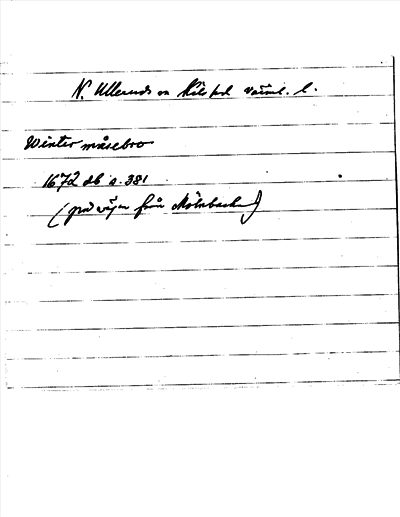 N. Ulleruds sn Kils hd Värml. l.
Winter måsebro
1672 db s. 381
(på vägen från Mölnbacka)